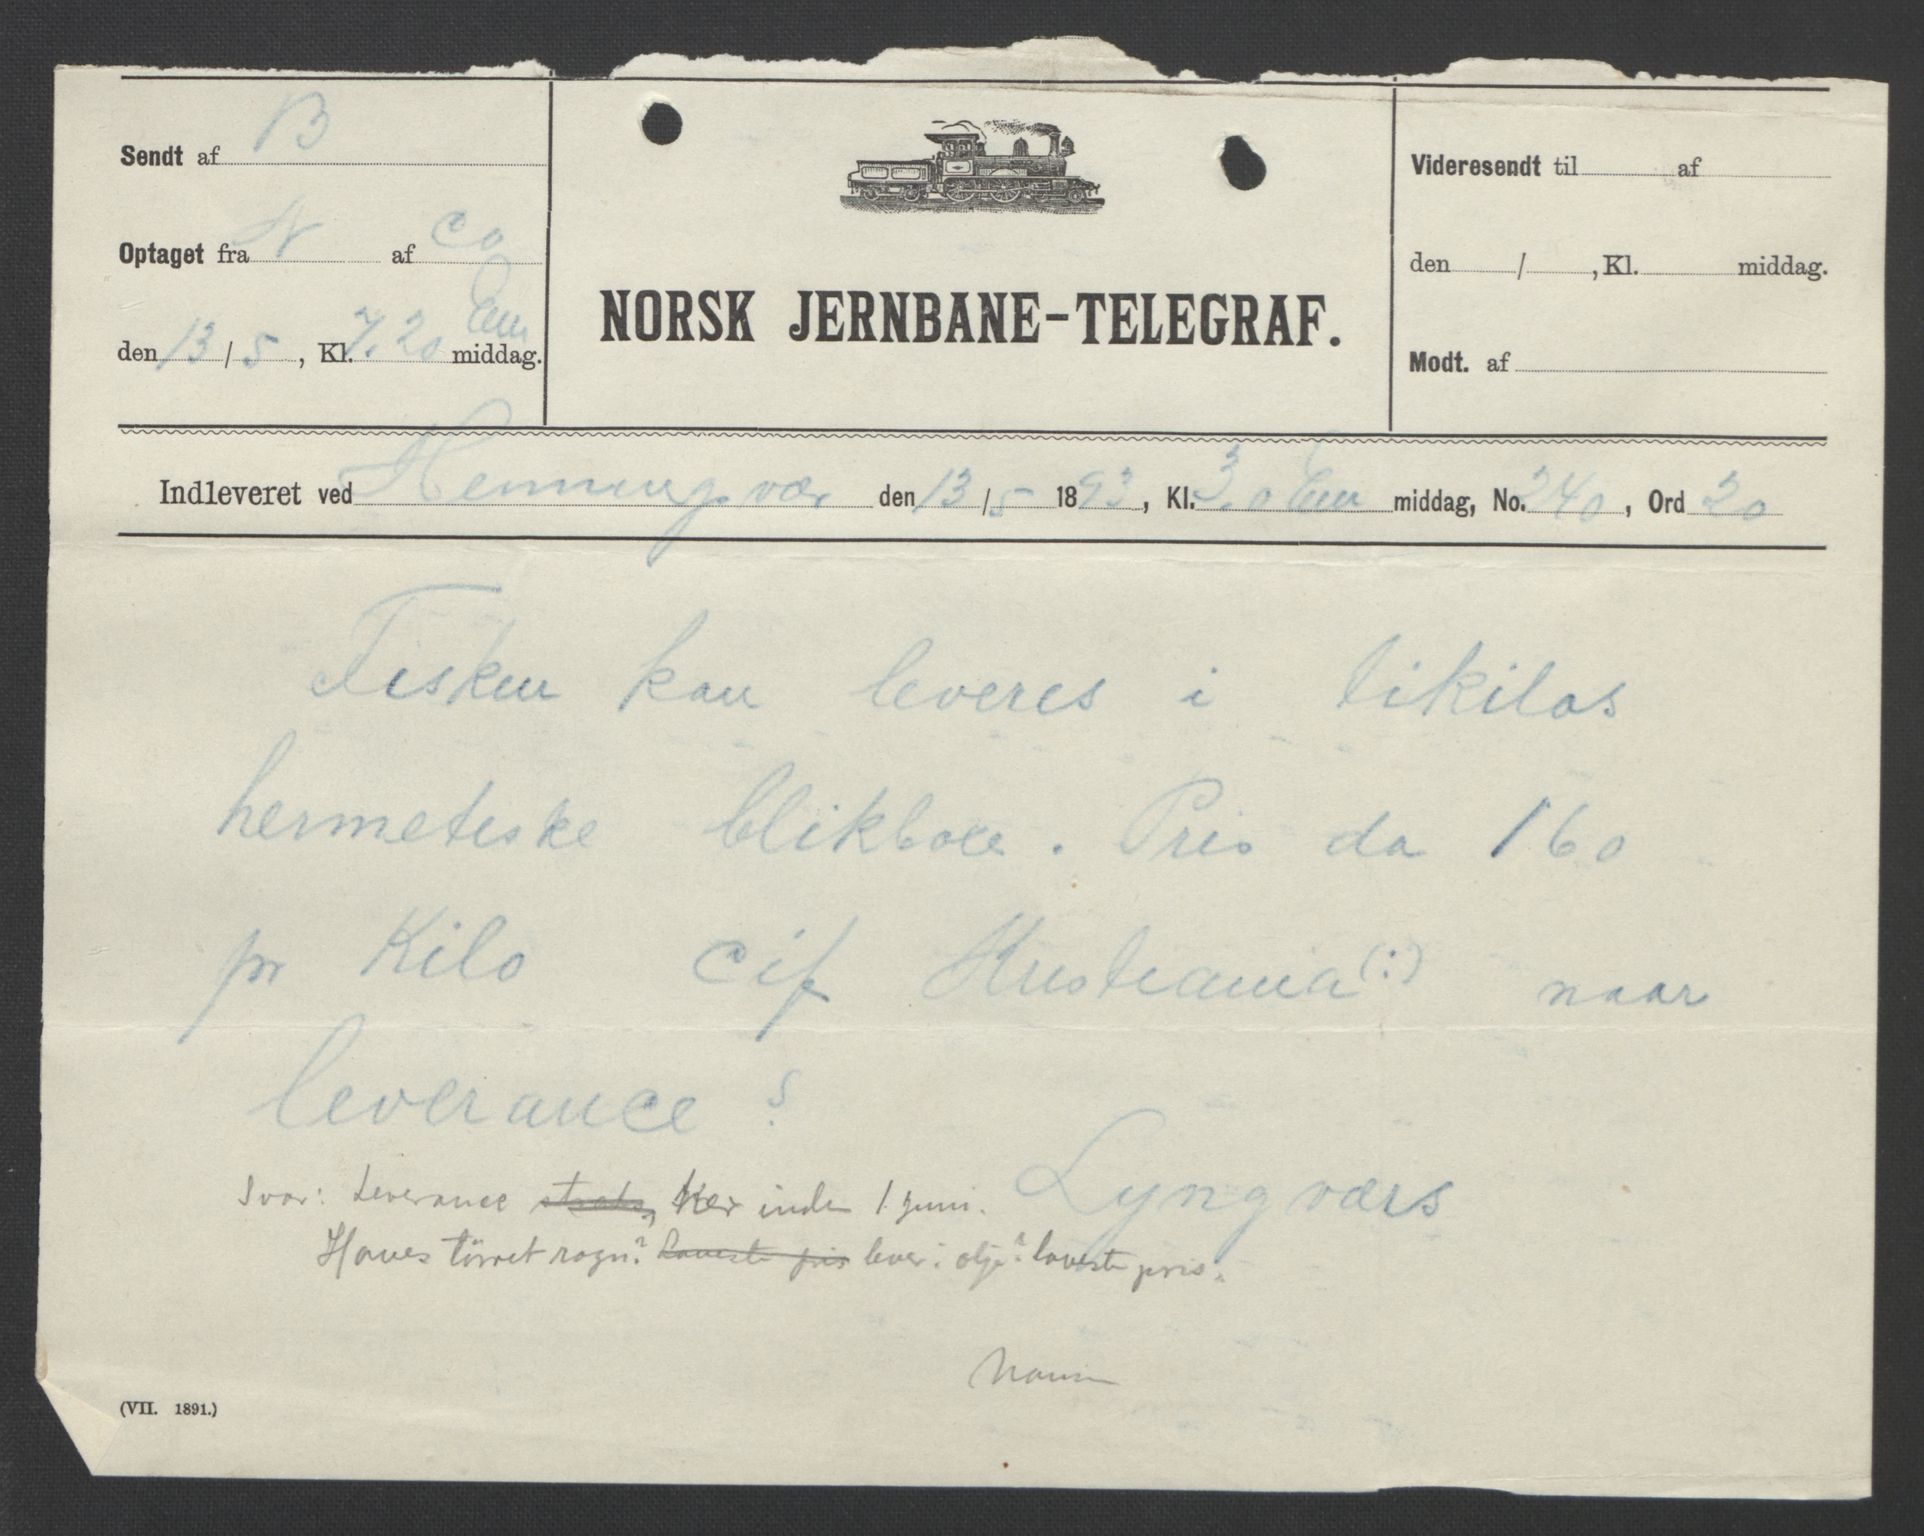 Sendt af B
Optaget fra N af Co
den 13/5, Kl. 7.20 Em middag.
NORSK JERNBANE-TELEGRAF.
Videresendt til af
den / , Kl. middag.
Modt. af
Indleveret ved Henningsvær den 13/5 1893, Kl. 3.0 Em middag, No. 240, Ord 20
Fisken kan leveres i tikilos
hermetiske blikboxe. Pris da 160
pr Kilo cif Kristiania (:) naar
leverance?
Lyngværs
Svar: Leverance straks, her inden 1. juni.
Haves törret rogn? Laveste pris lever i olje? laveste pris.
(VII. 1891.)